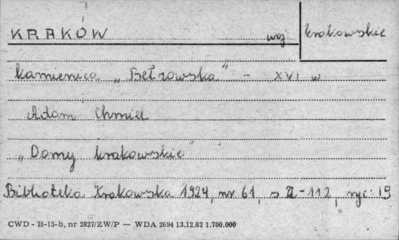 KRAKÓW woj krakowskie
Kamienica „Bełzowska" - XVI w
Adam Chmiel
„Domy krakowskie"
Biblioteka Krakowska 1924, nr 61, s II-112, ryc. 19
CWD - B-15-b, nr 2827/ZW/P — WDA 2694 13.12.62 1.700.000